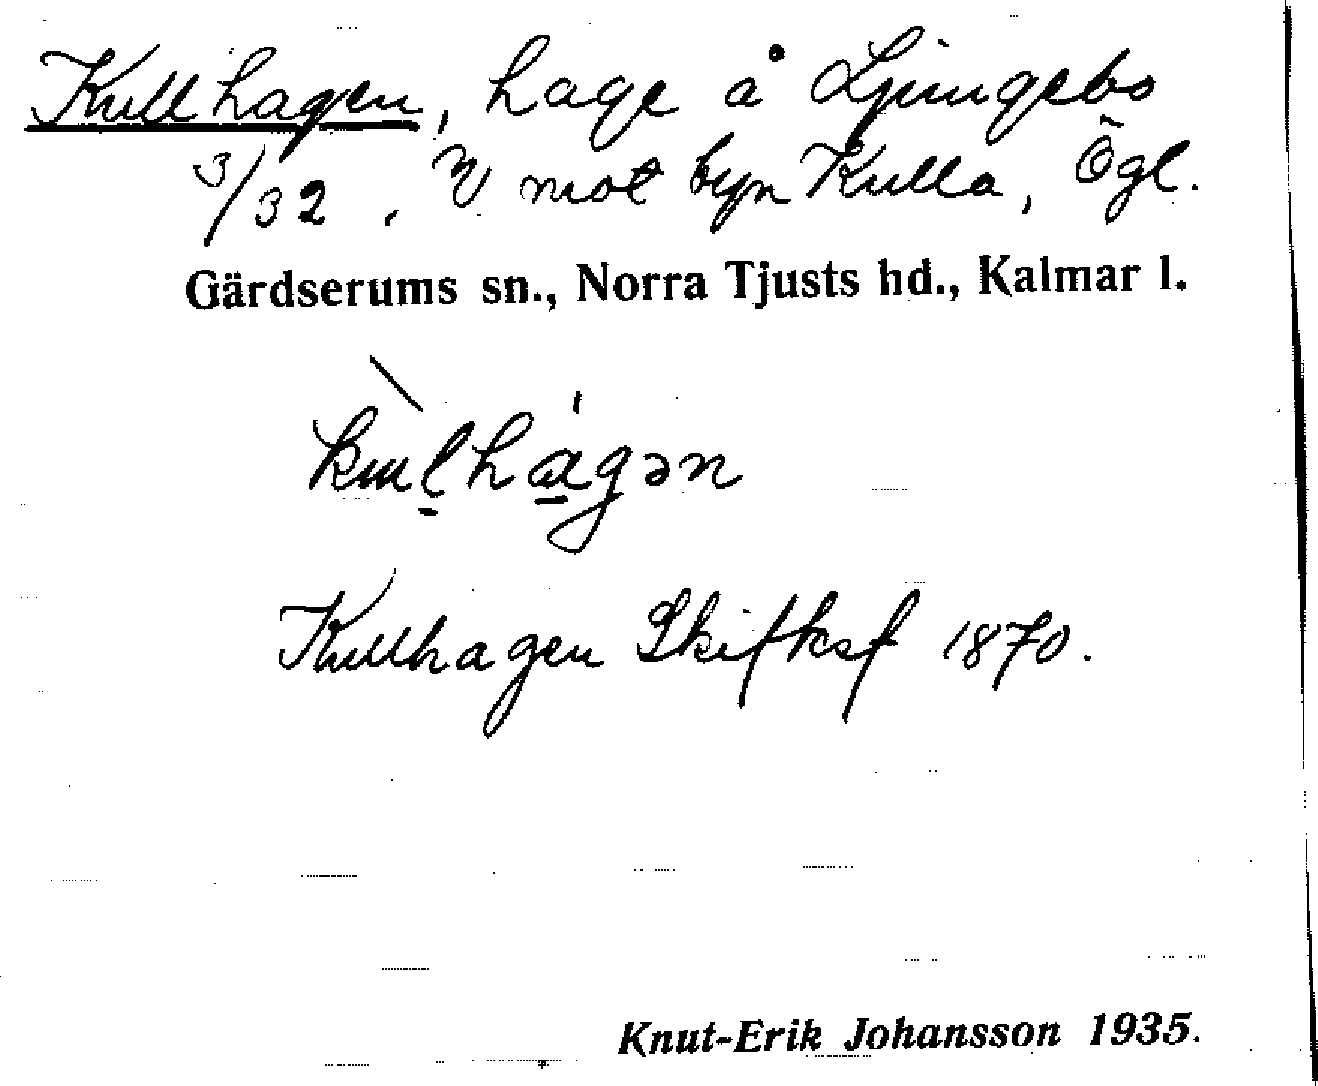 Kullhagen, hage å Ljungebo
3/32. V mot byn Kulla, Ögl.
Gärdserums sn., Norra Tjusts hd., Kalmar l.
Kullhagen Skifksf 1870.
Knut-Erik Johansson 1935.